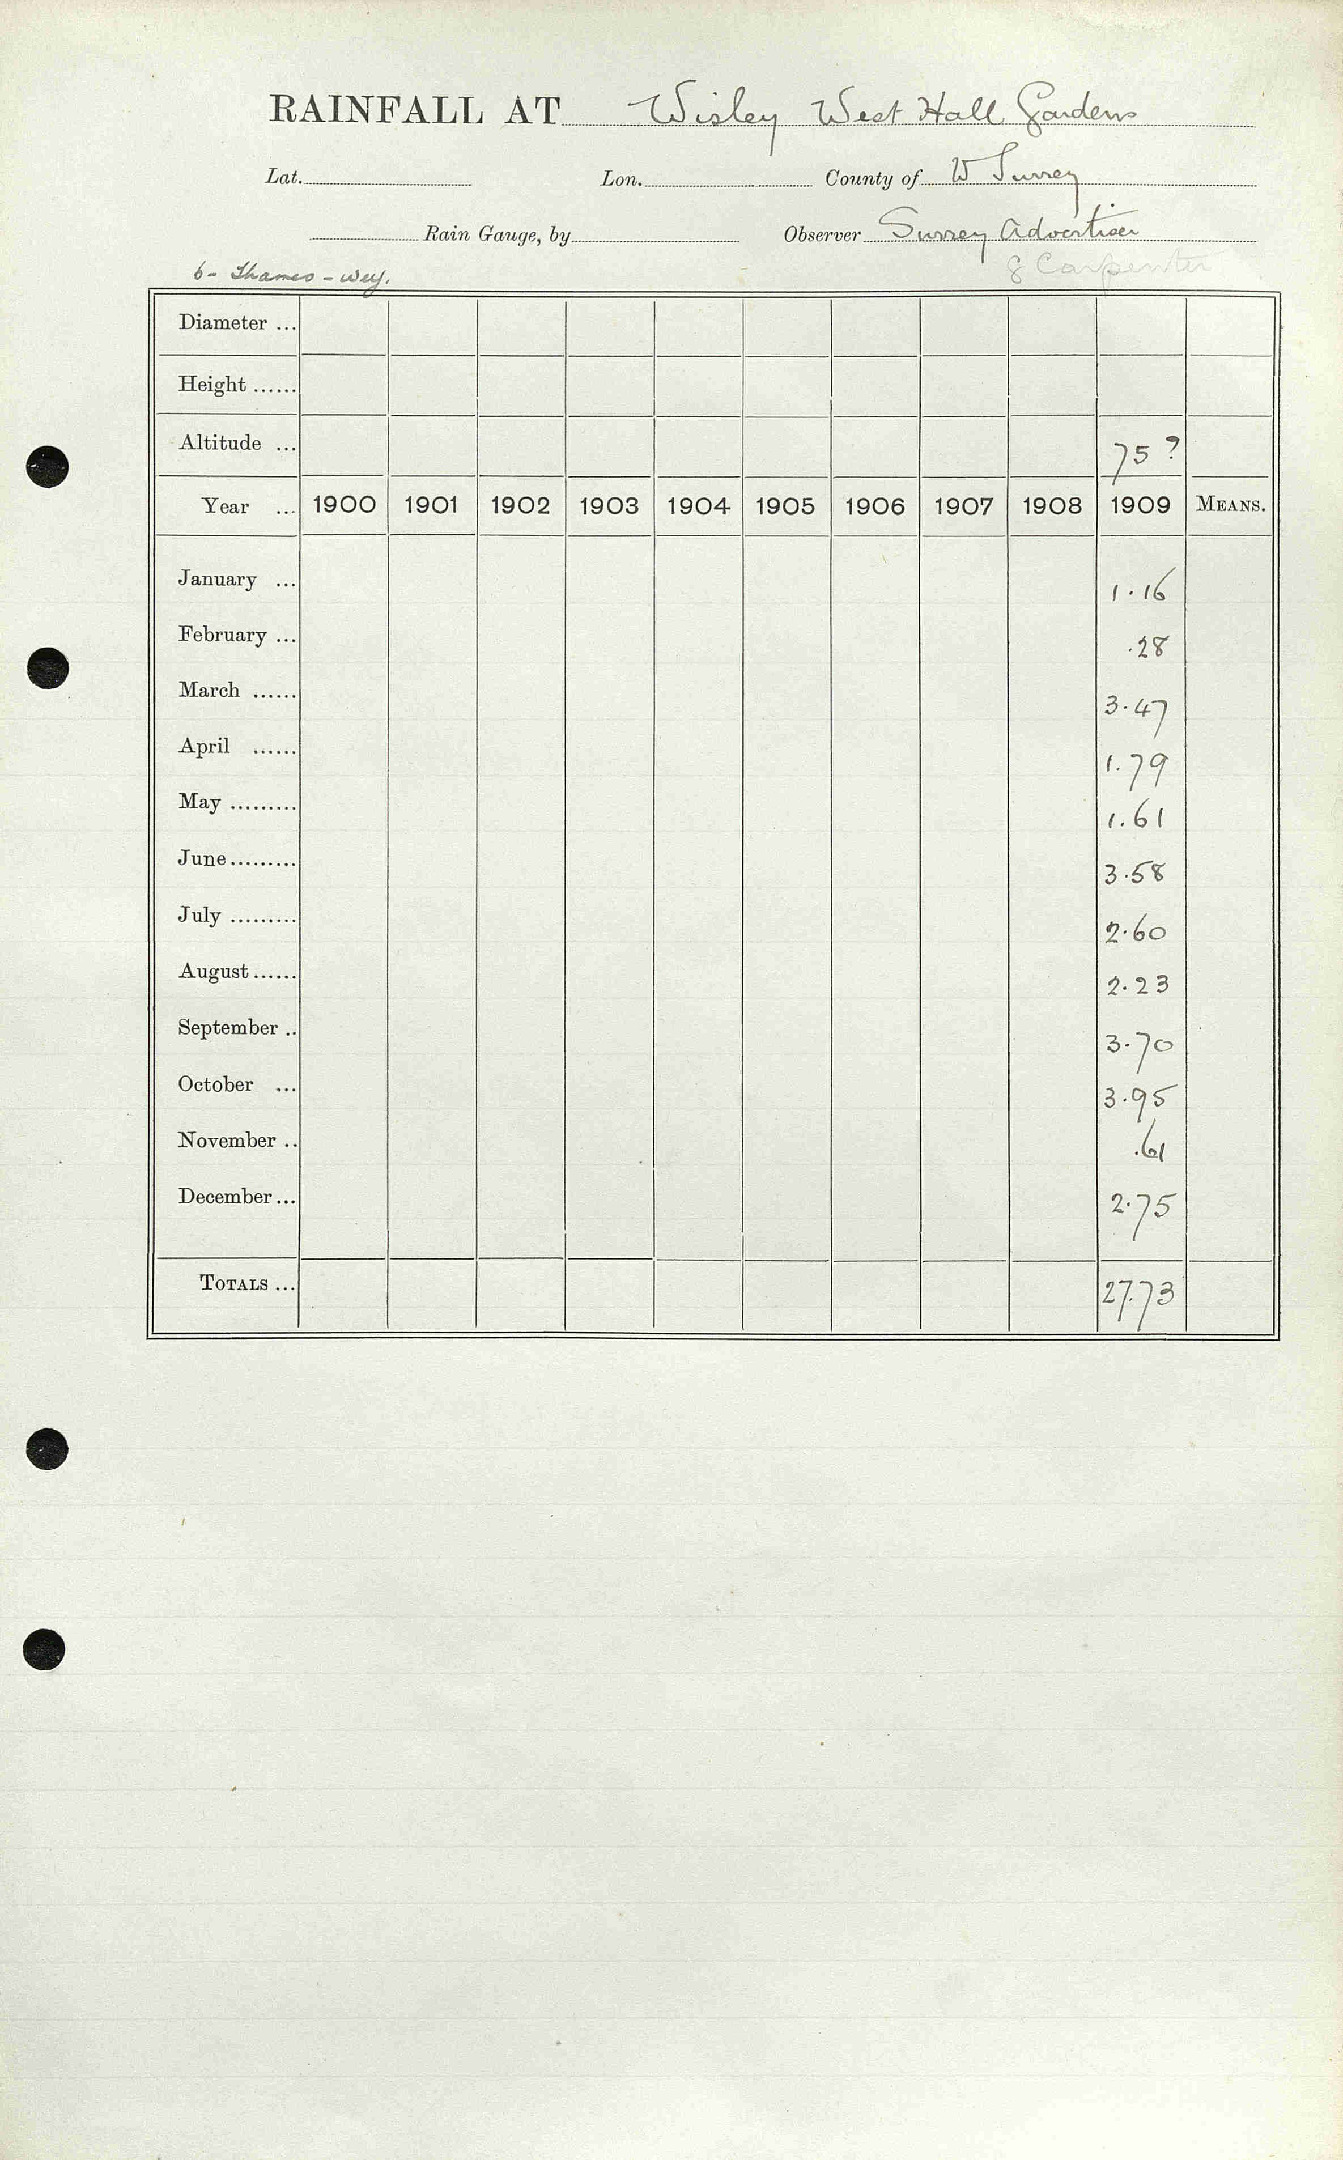 RAINFALL AT Wisley West Hall Gardens
Lat. Lon. County of W Surrey
Rain Gauge, by Observer Surrey Advertiser
6 - Thames - Wey. Carpenter
Diameter ...
Height ......
Altitude ... 75 ?
Year ... 1900 1901 1902 1903 1904 1905 1906 1907 1908 1909 MEANS.
January ... 1.16
February ... .28
March ...... 3.47
April ...... 1.79
May ......... 1.61
June ......... 3.58
July ......... 2.60
August ...... 2.23
September .. 3.70
October ... 3.95
November .. .61
December ... 2.75
TOTALS ... 27.73